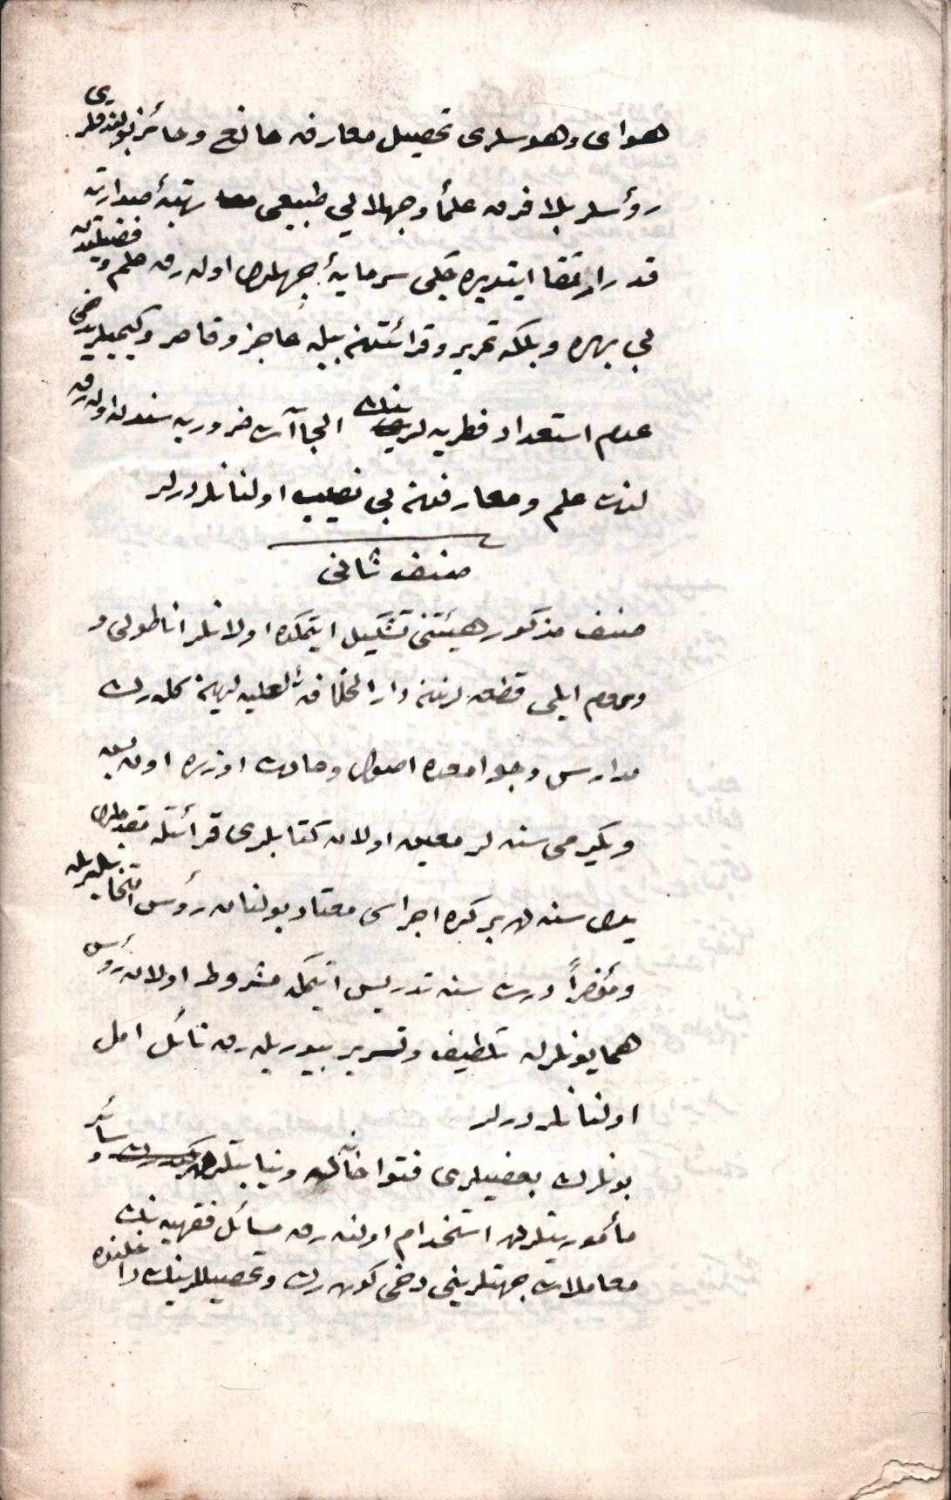 هوای و هوسلری تحصیل معارفه مانع و حائز بولندقلری
رؤسلر بلا فرق علماً و جهلا لی طبیعی تهیهٔ صدارته
قدر ارتقا ایتدیره جکی سرمایهٔ جهلدن اوله رق علم و فضیلتدن
بی بهره و بلکه تحریر و قرائتدن بیله عاجز و قاصر و کیمیلریدخی
عدم استعداد فطریه لرینك الجاآت ضروریه سندن اوله رق
لذت علم و معارفدن بی نصیب اولنانلردرلر
صنف ثانی
صنف مذکور هیئتنی تشکیل ایتمکده اولانلر اناطولی و
و روم ایلی قطعه لرندن دار الخلافة العلیه لرینه کله رك
مدارس و جوامعده اصول و عادت اوزره اون بش
و یکرمی سنه لر معین اولان کتابلری قرائتله
یدی سنه ده بر کره اجراسی معتاد بولنان رؤس امتحانلریله
و مؤخراً درت سنه تدریس ایتمك مشروط اولان رؤس
همایونلرله تلطیف و تسریر بیوریله رق نائل امل
اولنانلردرلر
بونلرك بعضیلری فتواخانه ده و نیابتلرده و سائر
مأموریتلرده استخدام اولنه رق مسائل فقهیه نك
معاملات جهتلرینی دخی کوره رك و تحصیللرینك داخلنده